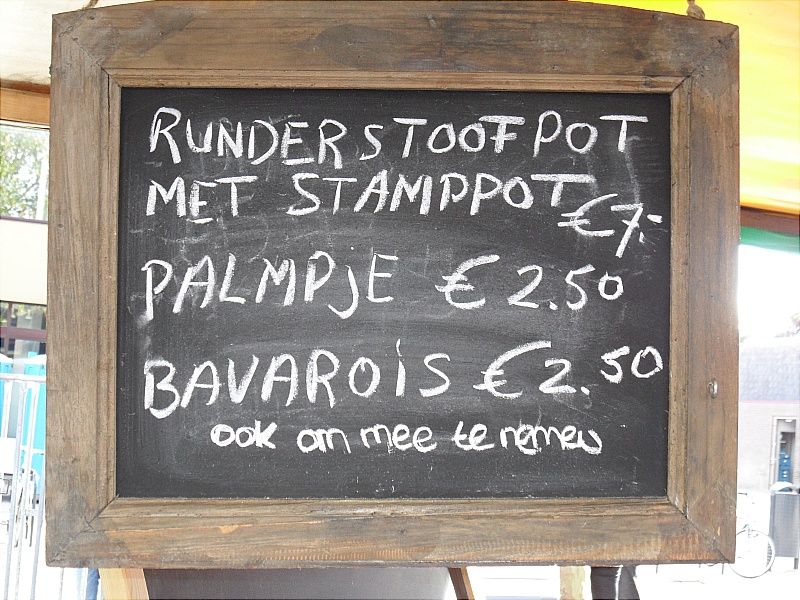 RUNDERSTOOFPOT
MET STAMPPOT
€7,-
PALMPJE €2.50
BAVAROIS €2.50
ook om mee te nemen